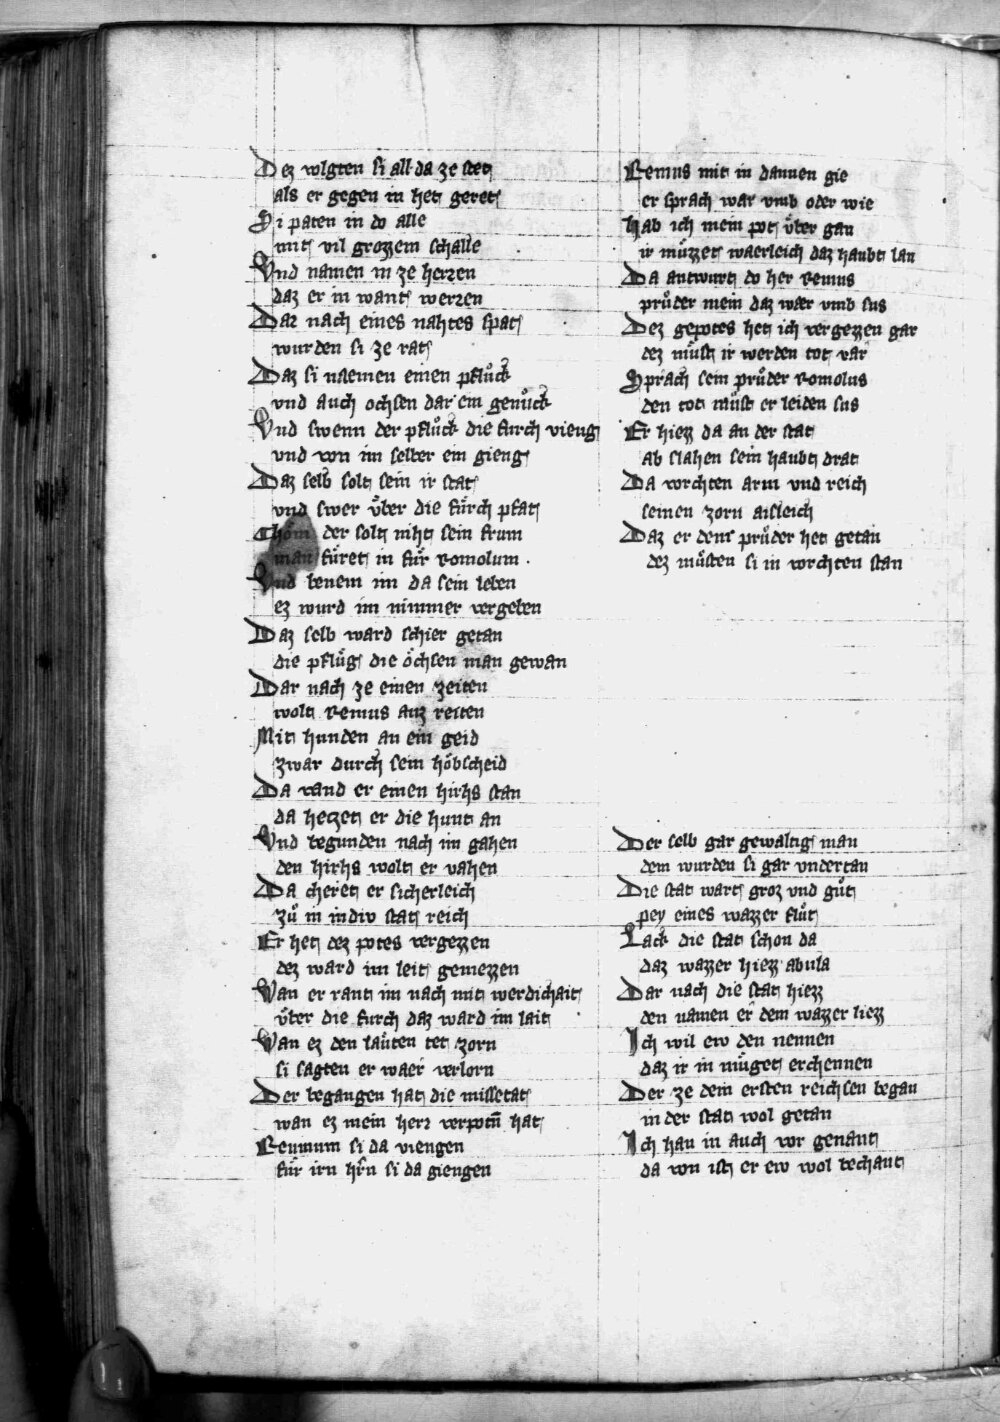 Dez volgten si all da ze stet
als er gegen in het geret
Si paten in do alle
mit vil grozzem schalle
Vnd namen in ze herren
daz er in want werren
Dar nach eines nahtes spat
wurden si ze rat
Daz si naemen einen pflůck
vnd auch ochsen dar ein genůck
Vnd swenn der pflůck die furch vieng
vnd von im selber ein gieng
Daz selb solt sein ir stat
vnd swer v̊ber die fůrch pfat
Chöm der solt niht sein frum
man fůret in fůr Romolum.
Vnd benem im da sein leben
ez wurd im nimmer vergeben
Daz selb ward schier getan
die pflůg die öchsen man gewan
Dar nach ze einen zeiten
wolt Remus auz reiten
Mit hunden an ein geid
zwar durch sein höbscheid
Da vand er einen hirhs stan
da hetzet er die hunt an
Vnd begunden nach im gahen
den hirhs wolt er vahen
Da cheret er sicherleich
zů in in div stat reich
Er het dez potes vergezzen
dez ward im leit gemezzen
Wan er rant im nach mit werdichait
v̊ber die furch daz ward im lait
Wan ez den laůten tet zorn
si sagten er waer verlorn
Der begangen hat die missetat
wan ez mein herr verpotn̄ hat
Remum si da viengen
fůr irn hr̄n si da giengen
Remus mit in dannen gie
er sprach war vmb oder wie
Hab ich mein pot v̊ber gan
ir můzzet waerleich daz haubt lan
Da antwurt do her Remus
průder mein daz waer vmb sus
Dez gepotes het ich vergezzen gar
dez můst ir werden tot var
Sprach sein průder Romolus
den tot můst er leiden sus
Er hiezz da an der stat
ab slahen sein haubt drat
Da vorchten arm vnd reich
seinen zorn aisleich
Daz er dem průder het getan
dez můsten si in vorchten stan
Der selb gar gewaltig man
dem wurden si gar vndertan
Die stat wart groz vnd gůt
pey eines wazzer flůt
Lack die stat schon da
daz wazzer hiezz abula
Dar nach die stat hiezz
den namen er dem wazzer liezz
Ich wil ew den nennen
daz ir in můget erchennen
Der ze dem ersten reichsen began
in der stat wol getan
Ich han in auch vor genant
da von ist er ew wol bechant